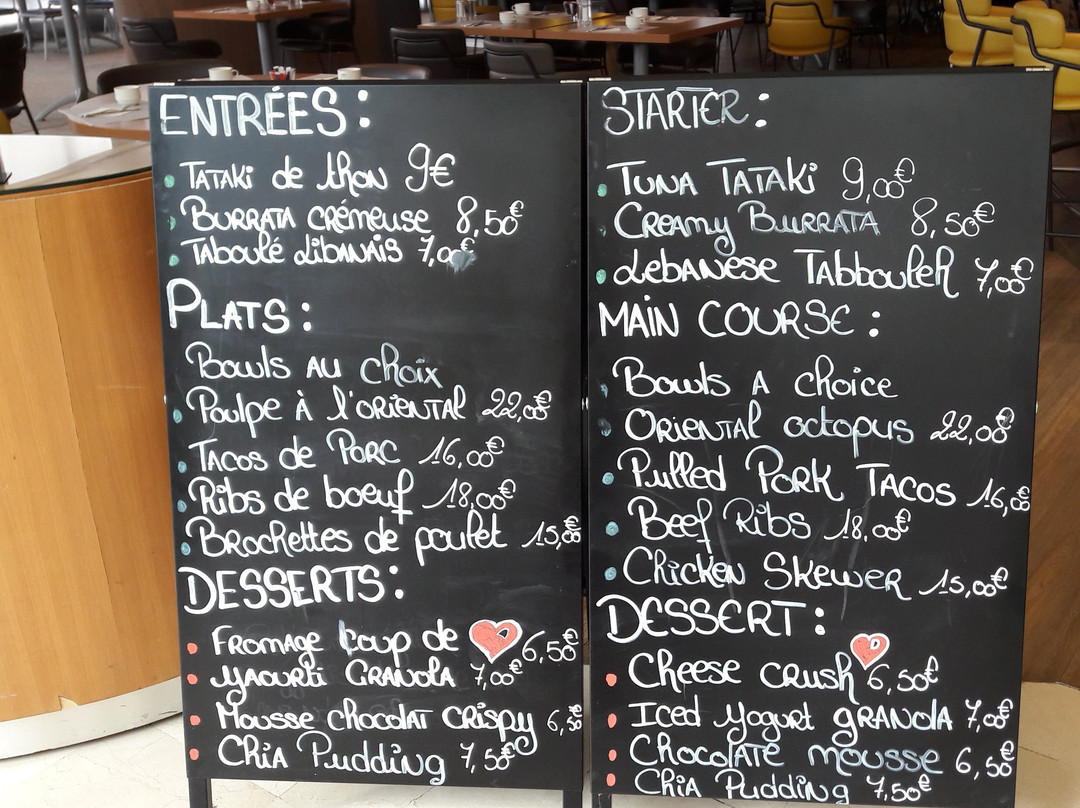 ENTRÉES :
TATAKi de thon 9€
BURRATA CRÉMEUSE 8,50€
TABOULÉ LIBANAIS 7,00€
PLATS :
BOWLS AU choix
Poulpe À l'ORiENTAL 22,00€
TACOS de PORC 16,00€
Ribs de boeuf 18,00€
BROCHETTES de poulet 15,00€
DESSERTS :
FROMAGE Coup de 6,50€
YAOURTi GRANOLA 7,00€
Mousse chocolAT CRiSpy 6,50€
Chia Pudding 7,50€
STARTER :
TUNA TATAKi 9,00€
CREAMy BURRATA 8,50€
LEBANESE TABBOULEH 7,00€
MAIN COURSE :
Bowls A choice
ORiENTAL octopus 22,00€
Pulled PORK TACOS 16,00€
Beef Ribs 18,00€
ChickEN SKEWER 15,00€
DESSERT :
CheESE CRUSh 6,50€
ICEd yogurt gRANOlA 7,00€
ChocolATE mousse 6,50€
Chia Pudding 7,50€